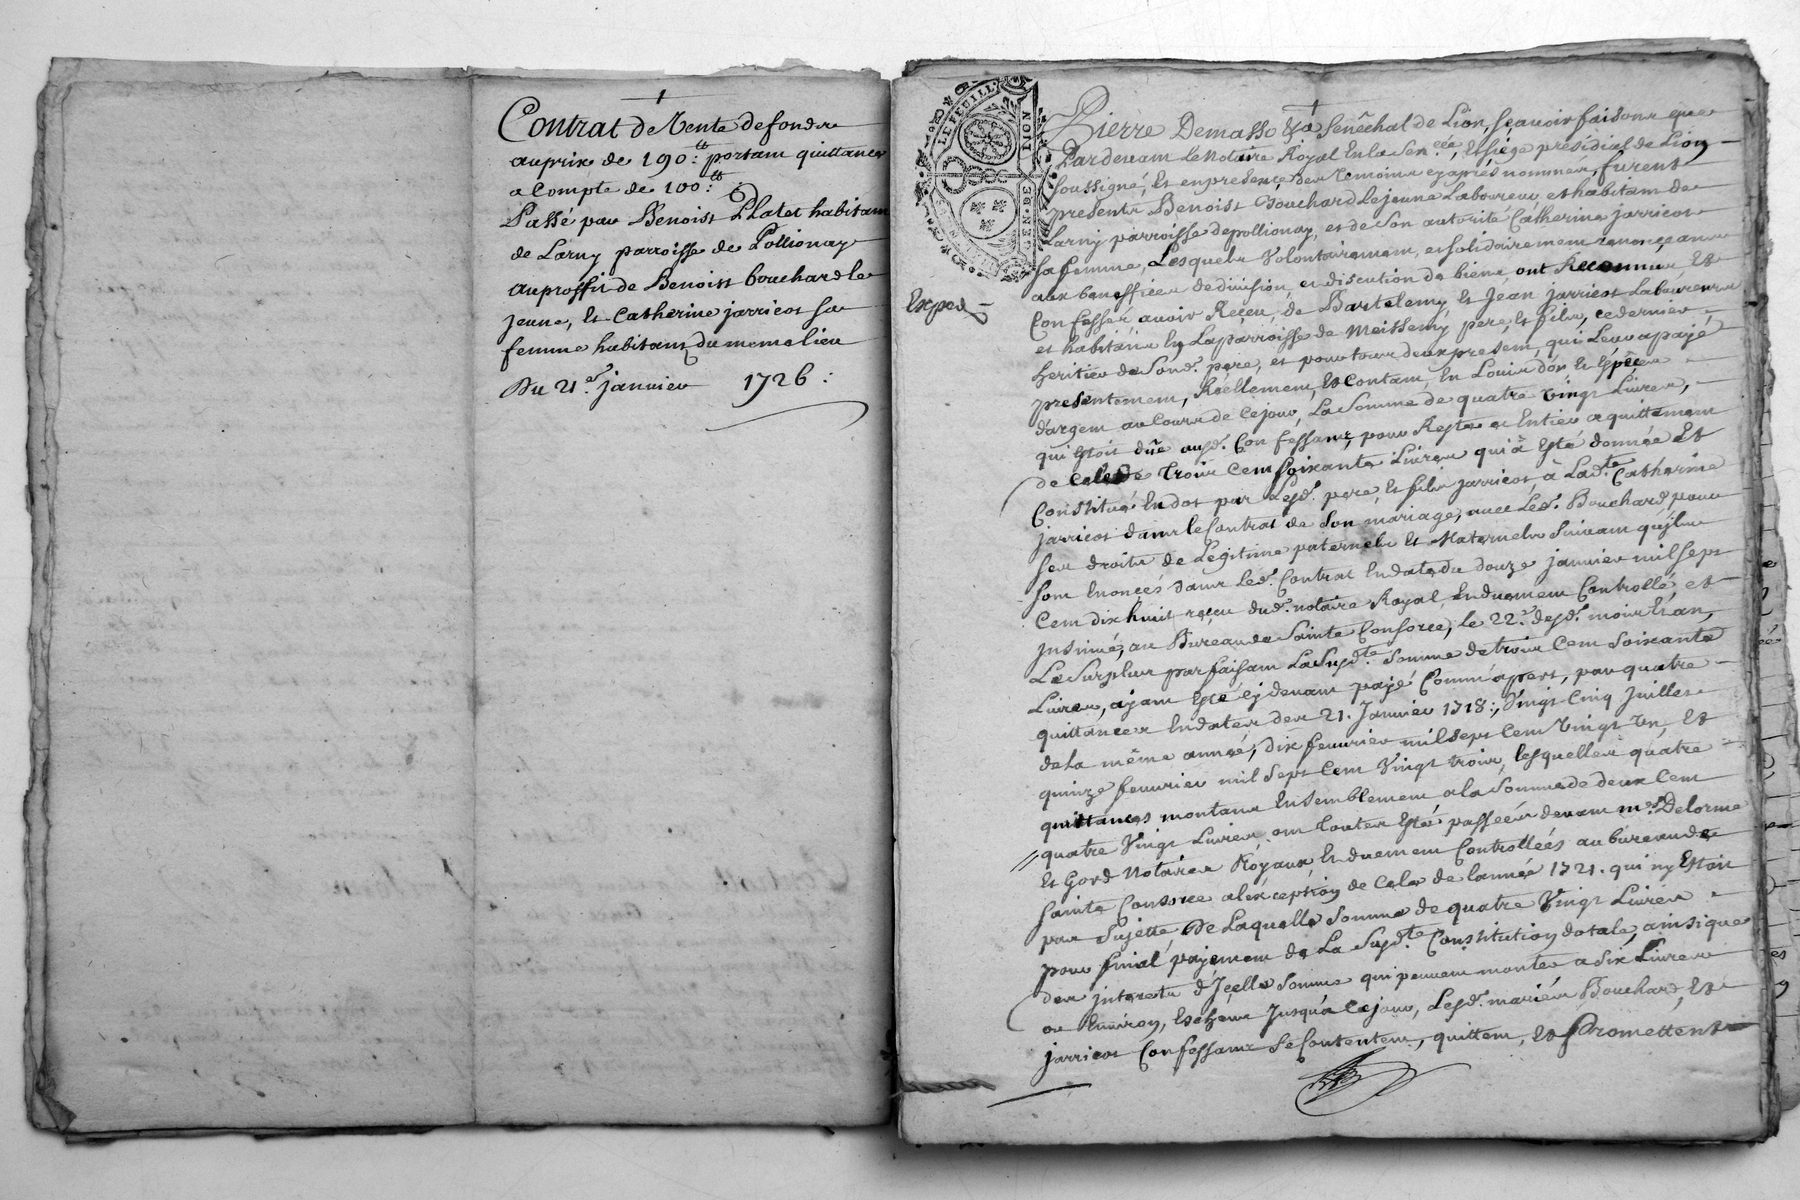 Contrat de Vente de fonds
au prix de 190:tt portant quittance
a Compte de 100:tt
Passé par Benoist Platet habitant
de Larny parroisse de Pollionay
au proffit de Benoist bouchard le
jeune, Et Catherine jarricot sa
femme habitans du meme lieu
Du 21e janvier 1726:
LE FEUILL.
GEN. DE LION
Exped
Pierre Demasso &a Senêchal de Lion, sçavoir faisons que
Pardevant Le Notaire Royal En la Sen.cée, Et siége présidial de Lion
soussigné, Et en presence des temoins cy aprés nommés, furent
presents Benoist Bouchard Le jeune Laboureur, et habitant de
Larny parroisse de pollionay, et de son autorité Catherine jarricot
sa femme, Lesquels Volontairement, et solidairement renonçeans
aux beneffices de division, et discution de biens ont Reconnus, Et
Confessér avoir Reçeu, de Bartelemy, Et Jean jarricot Laboureurs
et habitans En La parroisse de Meissemy pere, Et fils, ce dernier
heritier de son d. pere, et pour tous deux present, qui Leur a payé
presentement, Réellement, Et Contant, En Louis d'or Et Espéces
d'argent au Cours de Ce jour, La Somme de quatre Vingt Livres,
qui Etoit düe ausd. Confessans, pour Reste et Entier aquittement
de Celle de trois Cent soixante Livres qui à Eté donnée Et
Constituée En dot par Lesd. pere, Et fils jarricot, à Lad.te Catherine
jarricot dans le Contrat de son mariage, avec Led. Bouchard, pour
ses droits de Legitime paternels Et Maternels suivant qu'jls
sont Enoncés dans Led. Contrat En date du douze janvier mil sept
Cent dix huit reçeu dud. notaire Royal, Enduement Controllé, et
jnsinué, au Bureau de Sainte Consorce, le 22.e desd. mois Et an,
Le Surplus parfaisant La Susd.te Somme de trois Cent soixante
Livres, ayant Eté cy devant payé Comm'apert, par quatre
quittances En dates des 21. Janvier 1718:, Vingt Cinq Juillet
de la même année, dix fevrier mil sept Cent Vingt Un, Et
quinze fevrier mil sept Cent Vingt trois, lesquelles quatre
quittances montans Ensemblement a la Somme de deux Cent
quatre Vingt Livres ont toutes Eté passées devant mes Delorme
Et Gord Notaires Royaux, Enduement Controllées au bureau de
Sainte Consorce a l'éxception de Cele de l'année 1721. qui n'y Etoit
pas Sujette De Laquelle Somme de quatre Vingt Livres
pour finial payement de La Susd.te Constitution dotale, ainsi que
des jnterets d'Jcelle Somme qui peuvent monter a dix Livres
ou Environ, Echeus Jusqu'a Ce jour, Lesd. mariés Bouchard, Et
jarricot Confessans Se Contentent, quittent, Et Promettent